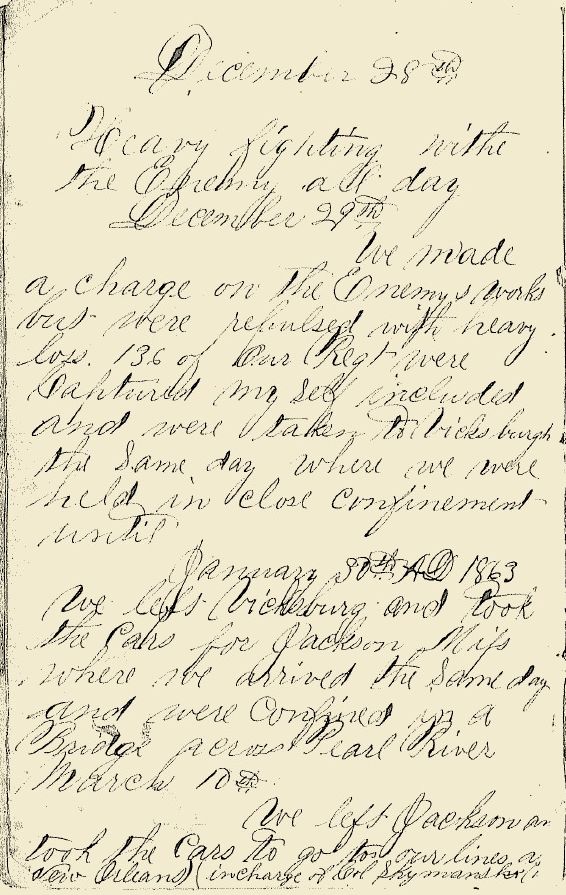 December 28th
Heavy fighting withe
the Enemy all day
December 29th
We made
a charge on the Enemys works
but were repulsed with heavy
loss. 136 of Our Regt were
Captured my self included
and were taken to Vicksburgh
the Same day where we were
held in close confinement
until
January 30th AD 1863
We left Vicksburg and took
the Cars for Jackson Miss
where we arrived the Same day
and were Confined in a
Bridge across Pearl River
March 10th
We left Jackson an
took the Cars to go to our lines
New Orleans) (in charge of Col